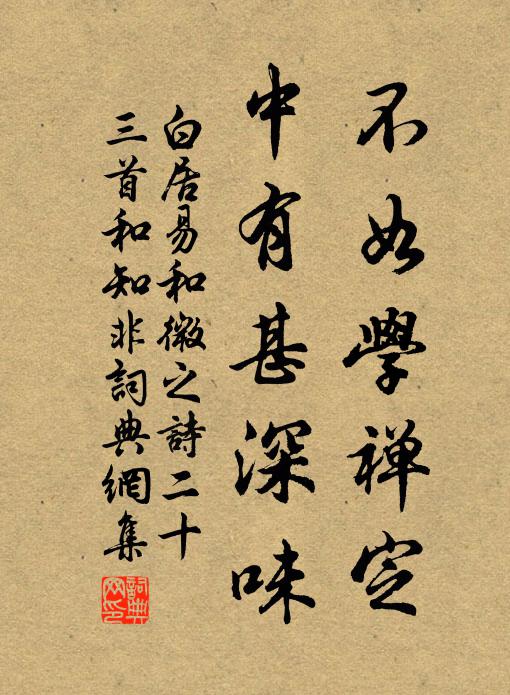 不如學禅定
中有甚深味
白居易和微之詩二十
三首和知非詞典網集
詞典网印